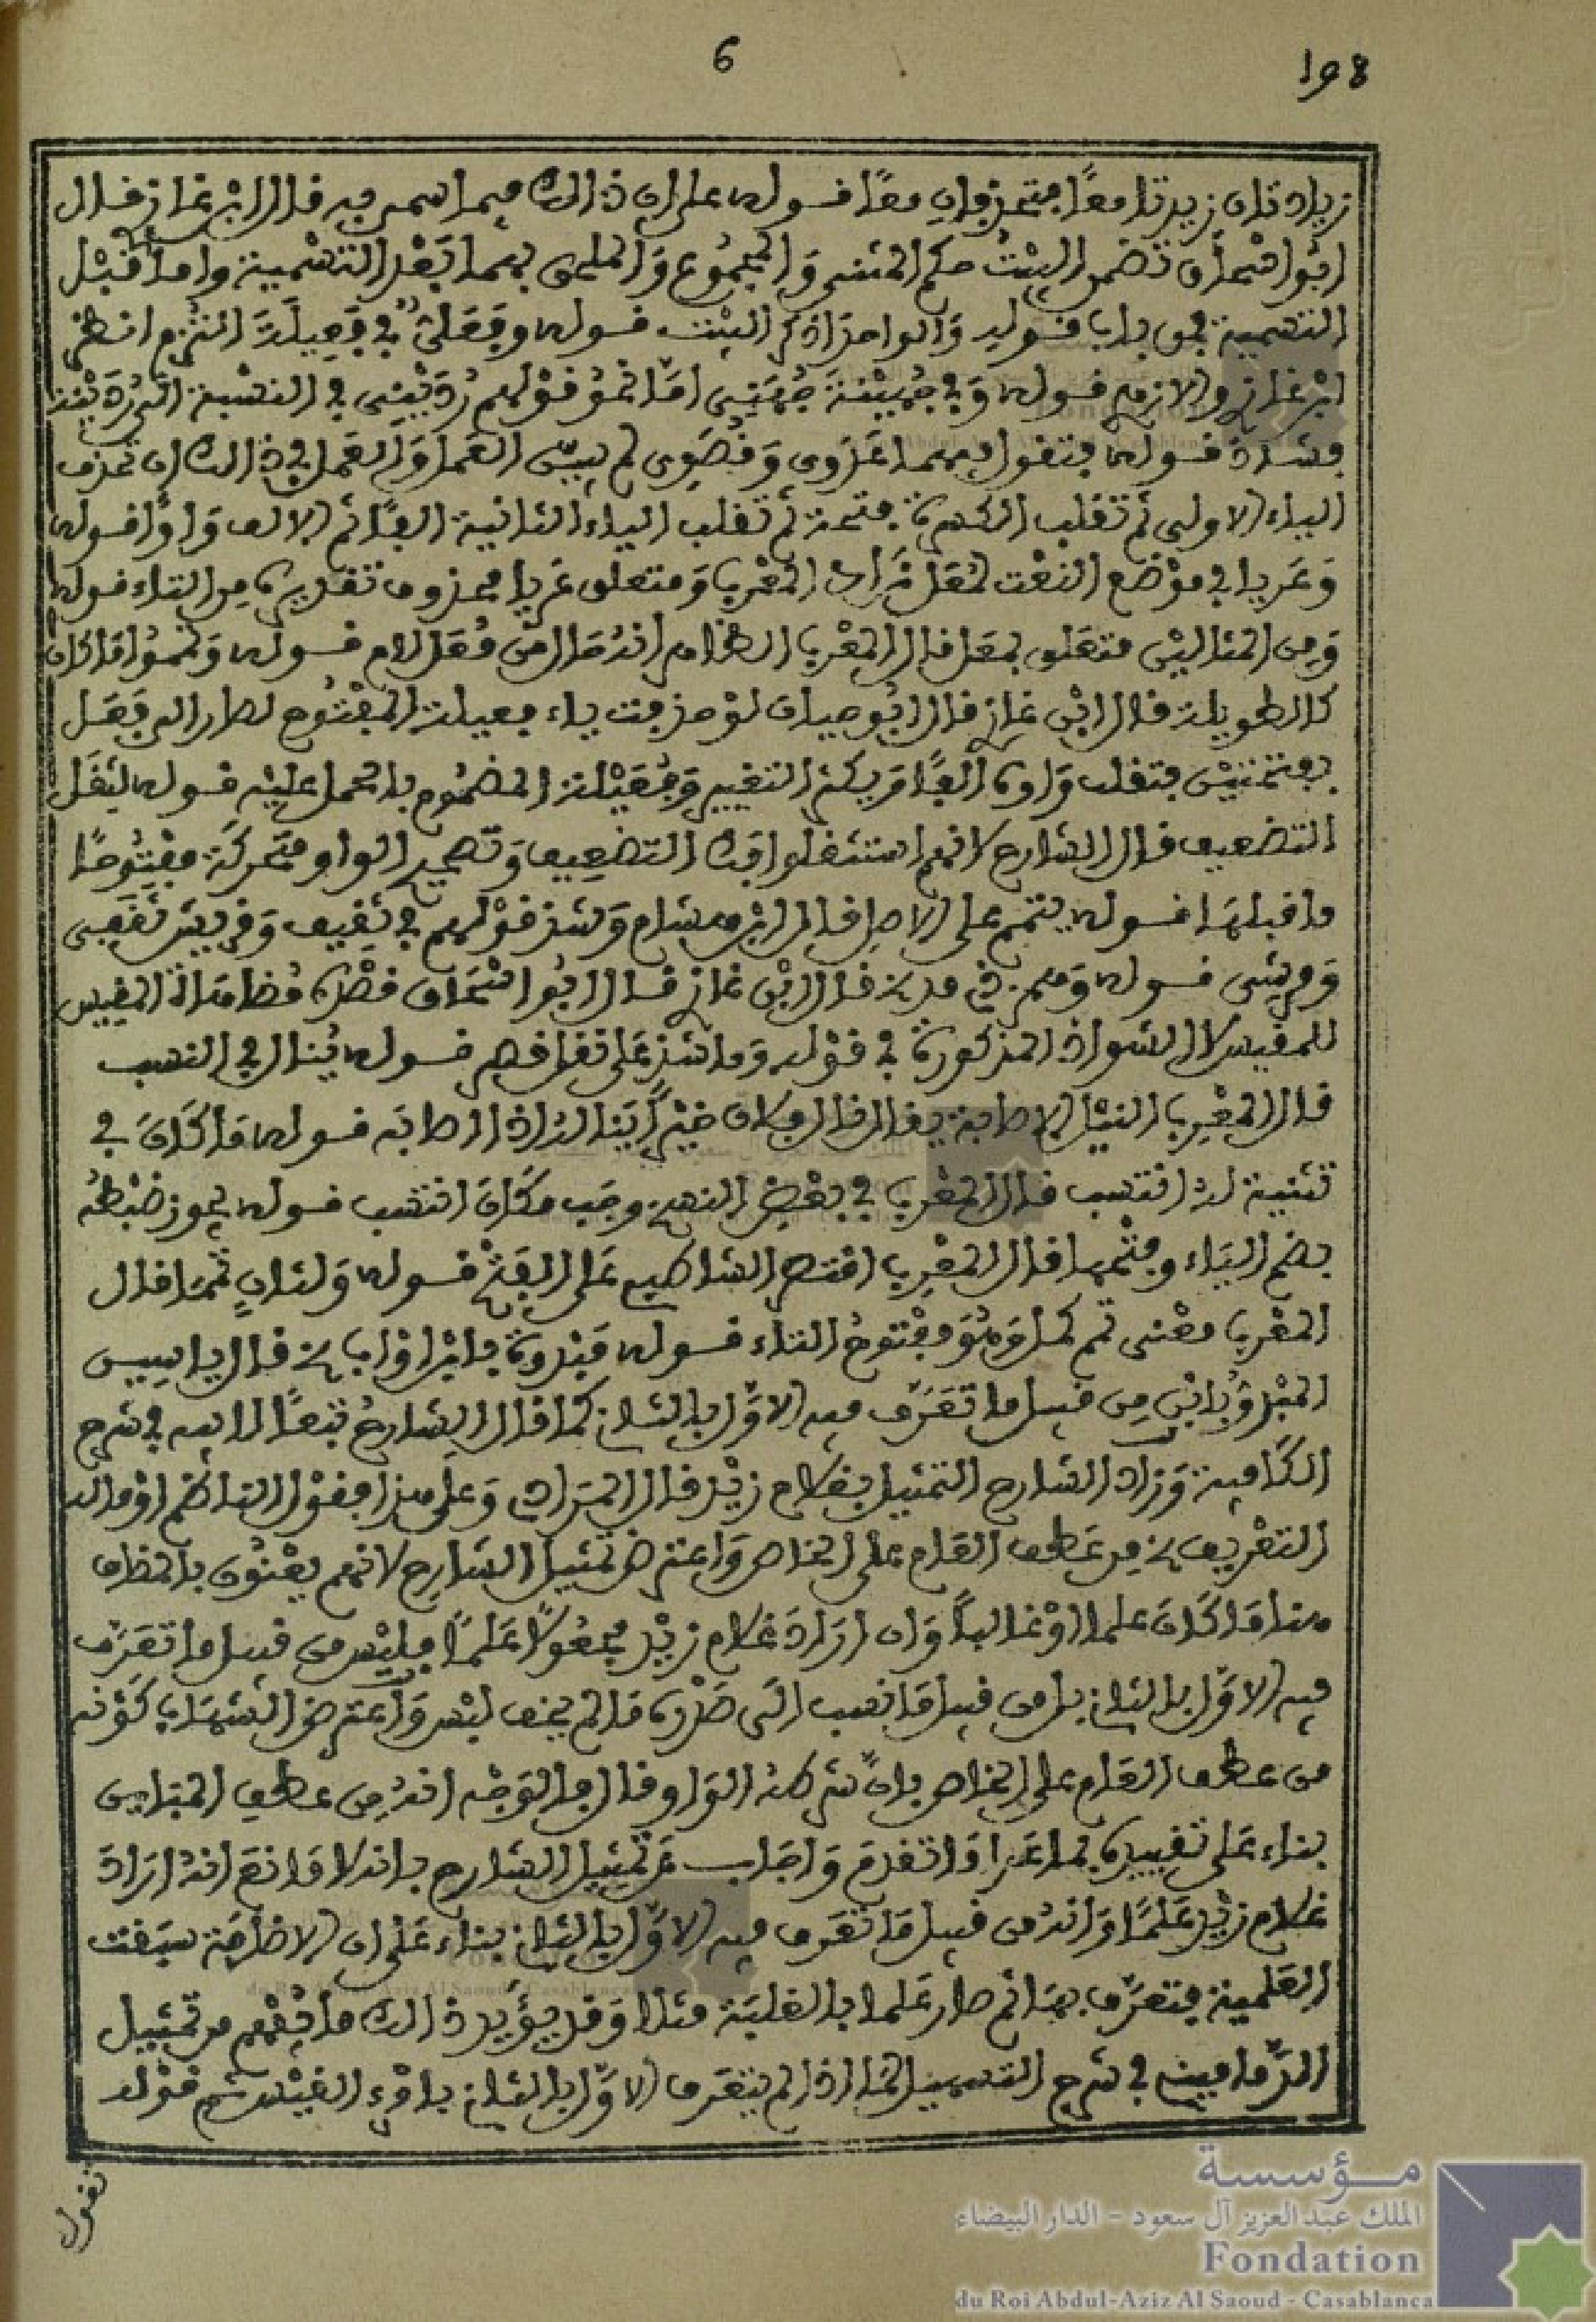 6
198
زيادتان زيدتا معًا فتحذفان معًا قوله على ان ذالك فيما سمى به قال ابن غاز قال
ابوا سحاق تضمن البيْتُ حكم المثنى وَالمجمُوع وَالملحى بهما بَعْد التسْمية واما قبْل
التسمية فمن باب قوله وَالواحدَ اذكر البيْت قوله وفَعَلىّ في فَعِيلَةَ التُزم انظر
ابْن غاز ولابد قوله وَفي جُهيْنةَ جُهَنِى امّا نحوُ قوْلهم رُدَيْنِى في النسْبة الى رُدَيْنة
فشاذ قوله فتقول فيهما غَزَوِى وَقُصَوِى لم يبيّن العَمل وَالعَمل في ذالك ان تحذف
الياء الاولى ثم تقلب الكسرة فتحة ثم تقلب الياء الثانية الفًا ثم الالف وَاوًا قوله
وَعَريا في موْضع النعْت لمعَل لام قال المعْرب وَمتعلق عَريا محذوف تقديره مِن التاء قوله
وَمِن المثاليْن متعَلق بمعَل قال المعْرب الظاهر انهُ حَال مِن مُعَل لام قوله وَتمّموُا مَا كان
كالطويلة قال ابْن غاز قال ابُوحيان لوْ حذفت ياء فعيلة المفْتُوح لصار الى فَعَل
بفتحتيْن فتقلب وَاوه ألفًا فيكثر التغيير وَفُعَيْلة المضمُوم بالحمل عليْه قوله لثِقَل
التضعيف قال الشارح لانهم استثقلوا فك التضعِيف وَتصحيح الواو متحركَة مفتُوحًا
ما قبلهَا قوله يتمم على الاصل قال ابْن هشام وَشذ قوْلهم في ثَقِيف وَقريش ثَقَفِى
وَقرشى قوله وَهمز ذي مد الخ قال ابْن غاز قال ابُوا سْحَاق قصْره مُضاهَاة المقيس
للمقيس لا الشواذ المذكورة في قوْله وَما شذ عَلى تفَاقصر قوله يُنال في النسب
قال المعْرِب النيْل الاصابة يقال قال فلان خيْرًا يَنالُه اذا اصَابَه قوله مَا كَانَ في
تثنية له انتسب قال المعْرب في بعْضِ النسخ وجَب مكَان انتسَب قوله يجوز ضبْطهُ
بضم اليَاء وفتْحها قال المعْرِب اقتصر الشاطبي عَلى الفَتْح قوله وَلثانٍ تممَا قال
المعْرب معْنى تمم كمل وَهُوَ مفْتوحُ التاء قوله مَبْدوة بابْن اوْ اب الخ قال ياسِين
المبْدوُّ بابْن مِن قبيل ما تَعَرّف فيه الاوّل بالثان كما قال الشارحُ تبَعًا لابيه في شرح
الكَافية وَزاد الشارح التمثيل بغلام زيْد قال المرَادى وَعلى هذا فقوْل الناظم اوْ ماله
التعْريف الخ مِن عَطف العَام على الخاص وَاعترض تمثيل الشارح لانهم يعْنُون بالمضاف
هنا مَا كَان علما اوْ غالبًا وَان ارَادَ غلام زيْد مجعُولاً عَلمًا فليْس من قبيل ما تعَرّف
فيه الاوّل بالثان بل من قبيل مَا نسب الى صَدْره مَا لم يخف لبْس وَاعترض الشهَاب كَوْنه
من عطف العَام على الخاص بانّ شركة الوَاو قال فالوَجْه انهُ مِن عطف المبَاين
بناء عَلى تقييده بما عَدا مَا تقدم وَاجَاب عَن تمثِيل الشارح بانه لا مَانعَ انهُ ارَاد
غلام زيْد عَلمًا وَانهُ من قبيل مَا تعَرف فيه الاوَّل بالثان بناء عَلى ان الاضافة سبَقت
العَلمية فتعَرّف بهَا ثم صَار عَلما بالغلبَة مثلا وَقد يؤَيد ذالك مَا يُفهم من تمثِيل
الدمَامينى في شرح التسهيل لما اذا لم يتعَرف الاوّل بالثان بامْرئ القيْس ثم قوْله
تقول
مؤسسة
الملك عبد العزيز آل سعود - الدار البيضاء
Fondation
du Roi Abdul-Aziz Al Saoud - Casablanca